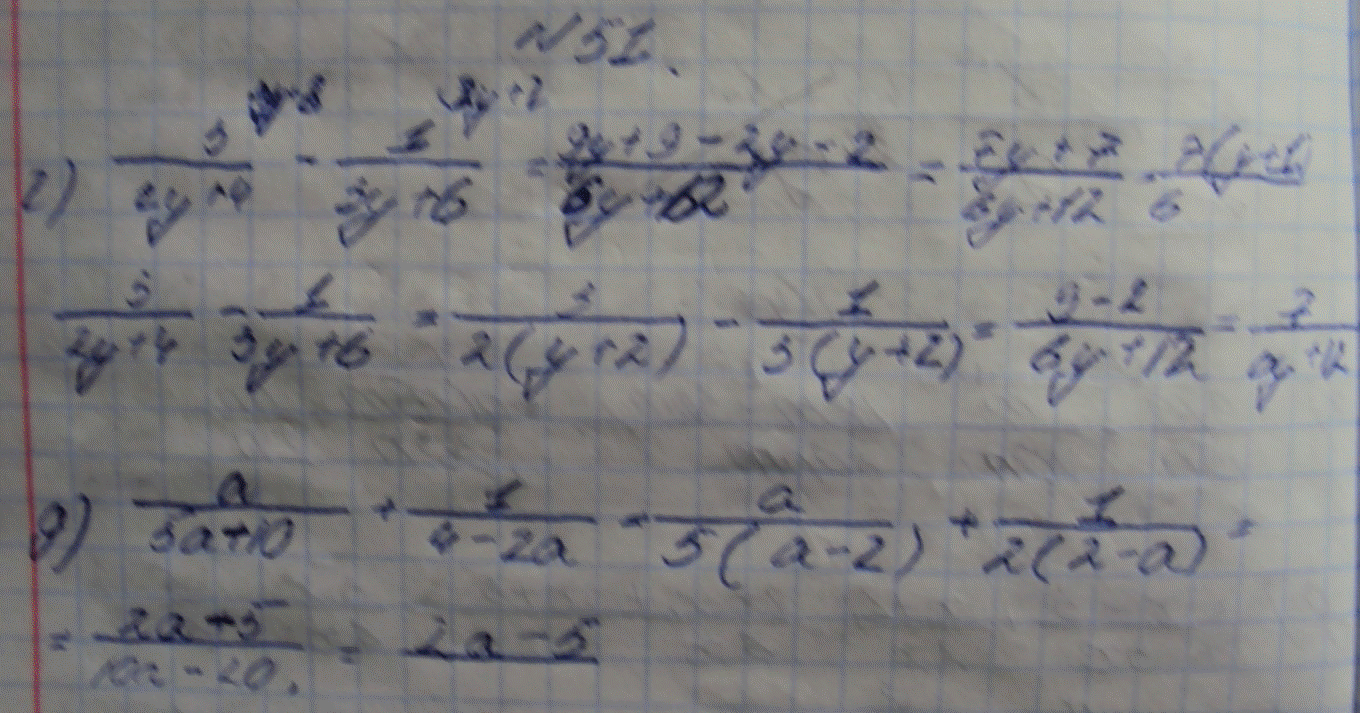 №51.
3y+3 2y+2
2) 3/(2y+4) - 1/(3y+6) = (9y+9-2y-2)/(6y+12) = (7y+7)/(6y+12) = 7(y+1)/6
3/(2y+4) - 1/(3y+6) = 3/(2(y+2)) - 1/(3(y+2)) = (9-2)/(6y+12) = 7/(6y+12)
a/(5a+10) + 1/(4-2a) = a/(5(a-2)) + 1/(2(2-a)) =
= (2a+5)/(10a-20) = 2a-5